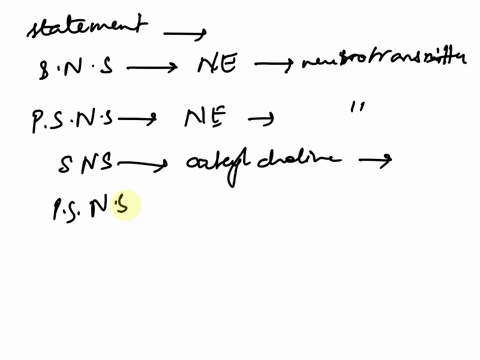 statement →
S.N.S → NE → neurotransmitter
P.S.N.S → NE → "
SNS → acetylcholine →
P.S.N.S